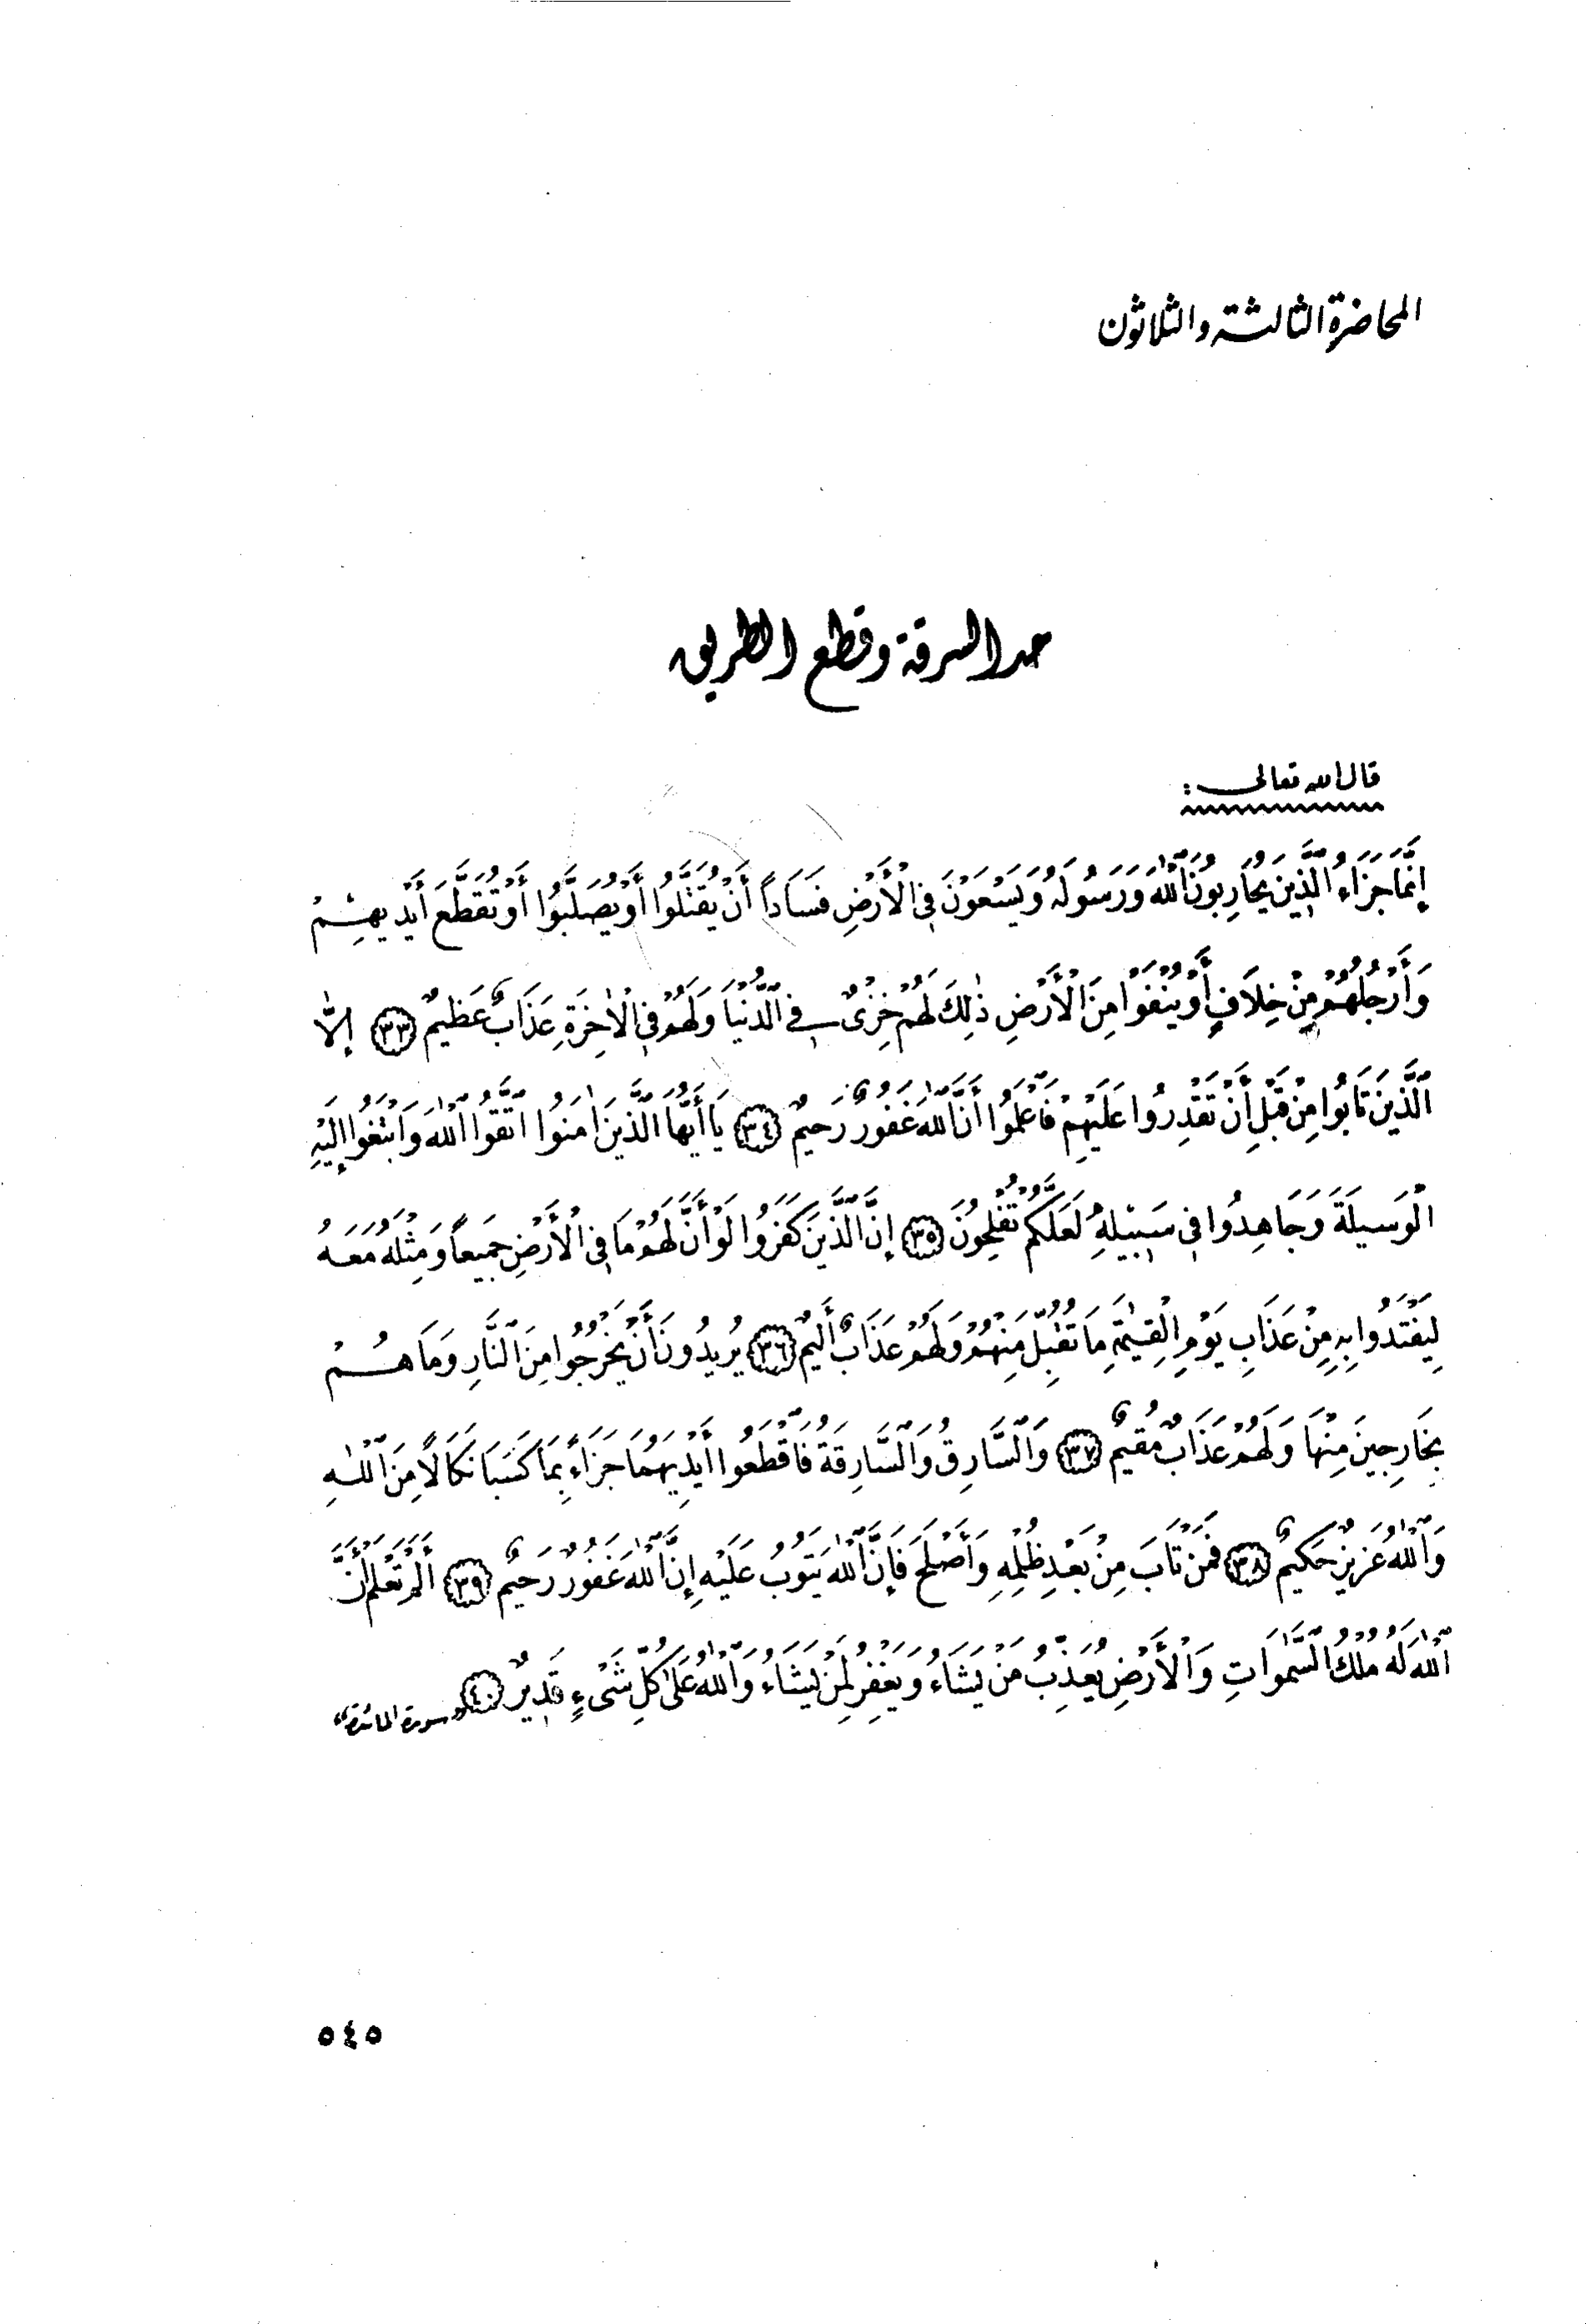 المحاضرة الثالثة والثلاثون
حد السرقة وقطع الطريق
قال الله تعالى :
إِنَّمَا جَزَاءُ الَّذِينَ يُحَارِبُونَ اللَّهَ وَرَسُولَهُ وَيَسْعَوْنَ فِي الْأَرْضِ فَسَاداً أَنْ يُقَتَّلُوا أَوْ يُصَلَّبُوا أَوْ تُقَطَّعَ أَيْدِيهِمْ
وَأَرْجُلُهُمْ مِنْ خِلَافٍ أَوْ يُنْفَوْا مِنَ الْأَرْضِ ذٰلِكَ لَهُمْ خِزْيٌ فِي الدُّنْيَا وَلَهُمْ فِي الْاٰخِرَةِ عَذَابٌ عَظِيمٌ ﴿٣٣﴾ إِلَّا
الَّذِينَ تَابُوا مِنْ قَبْلِ أَنْ تَقْدِرُوا عَلَيْهِمْ فَاعْلَمُوا أَنَّ اللَّهَ غَفُورٌ رَحِيمٌ ﴿٣٤﴾ يَا أَيُّهَا الَّذِينَ اٰمَنُوا اتَّقُوا اللَّهَ وَابْتَغُوا إِلَيْهِ
الْوَسِيلَةَ وَجَاهِدُوا فِي سَبِيلِهِ لَعَلَّكُمْ تُفْلِحُونَ ﴿٣٥﴾ إِنَّ الَّذِينَ كَفَرُوا لَوْ أَنَّ لَهُمْ مَا فِي الْأَرْضِ جَمِيعاً وَمِثْلَهُ مَعَهُ
لِيَفْتَدُوا بِهِ مِنْ عَذَابِ يَوْمِ الْقِيٰمَةِ مَا تُقُبِّلَ مِنْهُمْ وَلَهُمْ عَذَابٌ أَلِيمٌ ﴿٣٦﴾ يُرِيدُونَ أَنْ يَخْرُجُوا مِنَ النَّارِ وَمَا هُمْ
بِخَارِجِينَ مِنْهَا وَلَهُمْ عَذَابٌ مُقِيمٌ ﴿٣٧﴾ وَالسَّارِقُ وَالسَّارِقَةُ فَاقْطَعُوا أَيْدِيَهُمَا جَزَاءً بِمَا كَسَبَا نَكَالًا مِنَ اللَّهِ
وَاللَّهُ عَزِيزٌ حَكِيمٌ ﴿٣٨﴾ فَمَنْ تَابَ مِنْ بَعْدِ ظُلْمِهِ وَأَصْلَحَ فَإِنَّ اللَّهَ يَتُوبُ عَلَيْهِ إِنَّ اللَّهَ غَفُورٌ رَحِيمٌ ﴿٣٩﴾ أَلَمْ تَعْلَمْ أَنَّ
اللَّهَ لَهُ مُلْكُ السَّمٰوَاتِ وَالْأَرْضِ يُعَذِّبُ مَنْ يَشَاءُ وَيَغْفِرُ لِمَنْ يَشَاءُ وَاللَّهُ عَلَىٰ كُلِّ شَيْءٍ قَدِيرٌ ﴿٤٠﴾ «سورة المائدة»
٥٤٥